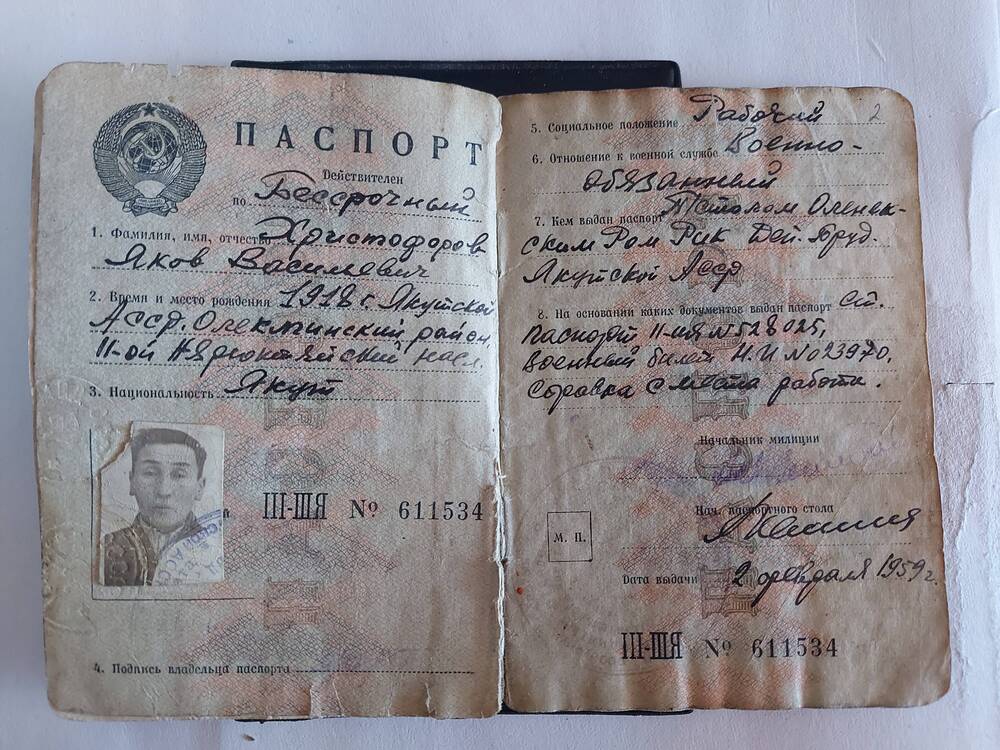 ПАСПОРТ
Действителен
по Бессрочный
1. Фамилия, имя, отчество Христофоров
Яков Васильевич
2. Время и место рождения 1918 г. Якутская
Асср. Олекминский район,
II-ой Нерюктяйский насл.
3. Национальность Якут
III-ШЯ № 611534
4. Подпись владельца паспорта
2
5. Социальное положение Рабочий
6. Отношение к военной службе Военно-
обязанный
7. Кем выдан паспорт
Якутской Асср
8. На основании каких документов выдан паспорт
Паспорт II-ШЯ № 528025,
Военный билет НИ № 023970,
Справка с места работы.
М. П.
Начальник милиции
Нач. паспортного стола
Дата выдачи 2 февраля 1959 г.
III-ШЯ № 611534